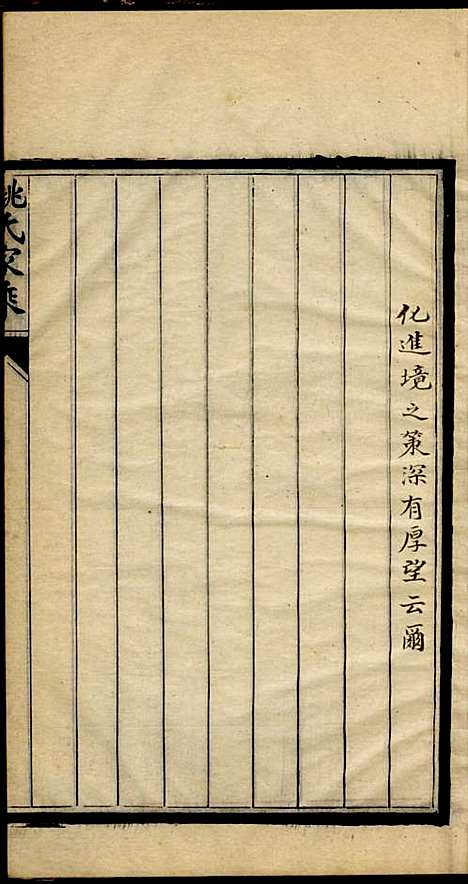 化進境之策深有厚望云爾
姚氏家乘